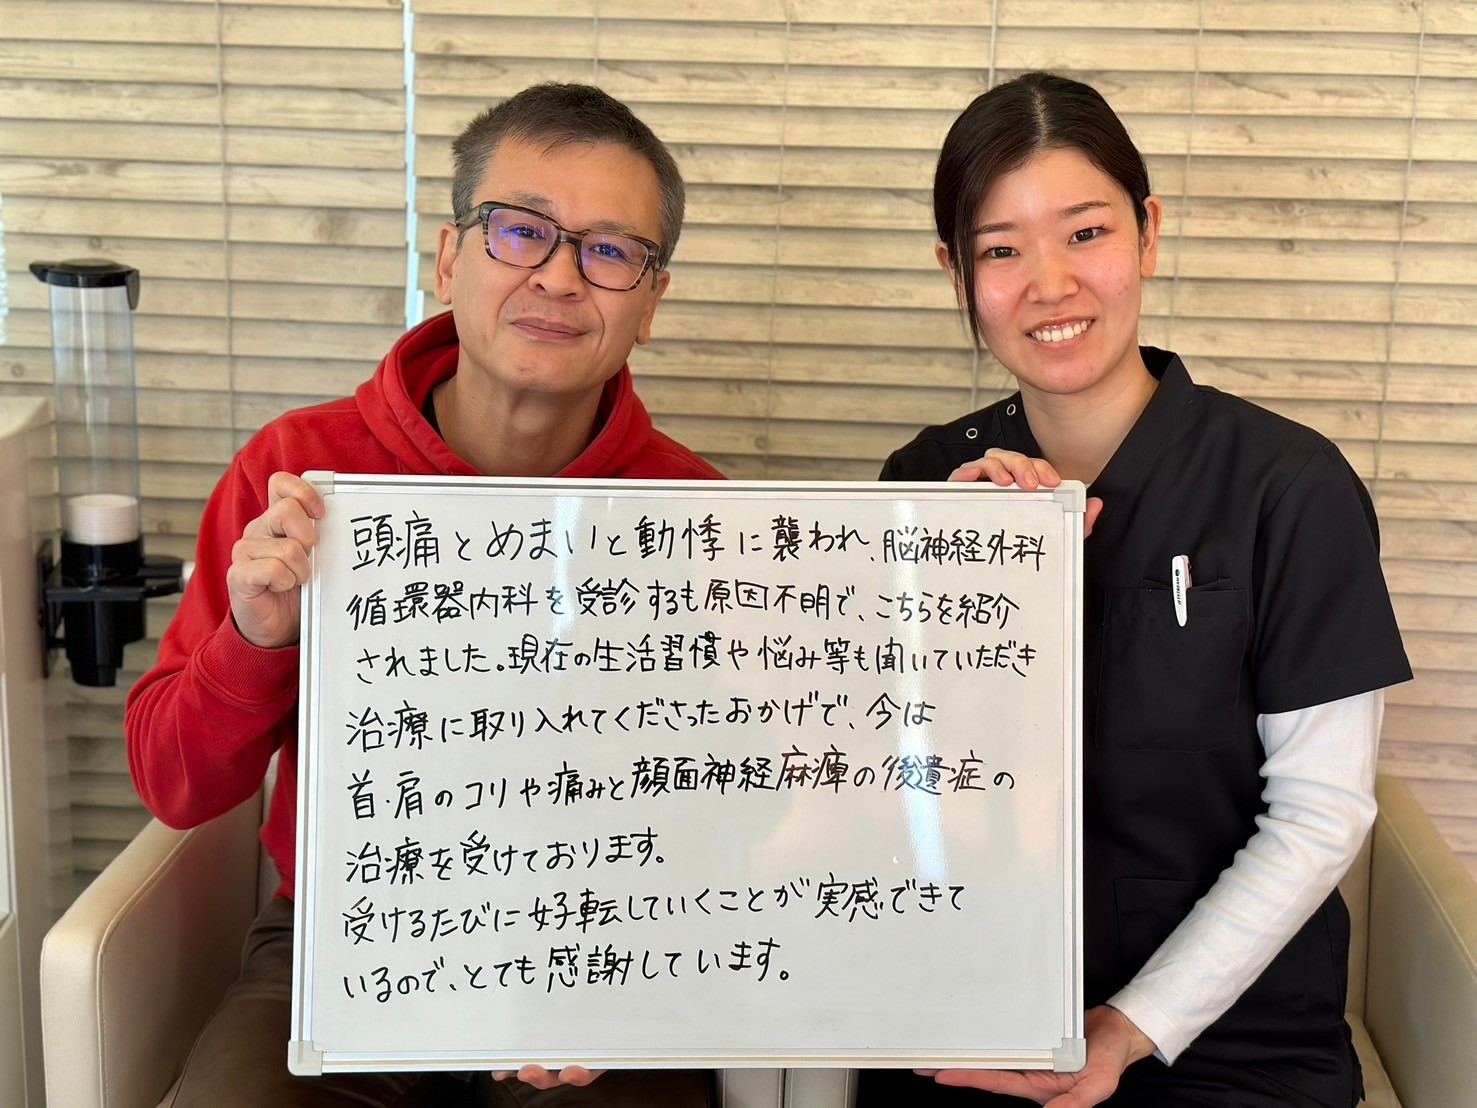 頭痛とめまいと動悸に襲われ、脳神経外科
循環器内科を受診するも原因不明で、こちらを紹介
されました。現在の生活習慣や悩み等も聞いていただき
治療に取り入れてくださったおかげで、今は
首・肩のコリや痛みと顔面神経麻痺の後遺症の
治療を受けております。
受けるたびに好転していくことが実感できて
いるので、とても感謝しています。
JETSTREAM